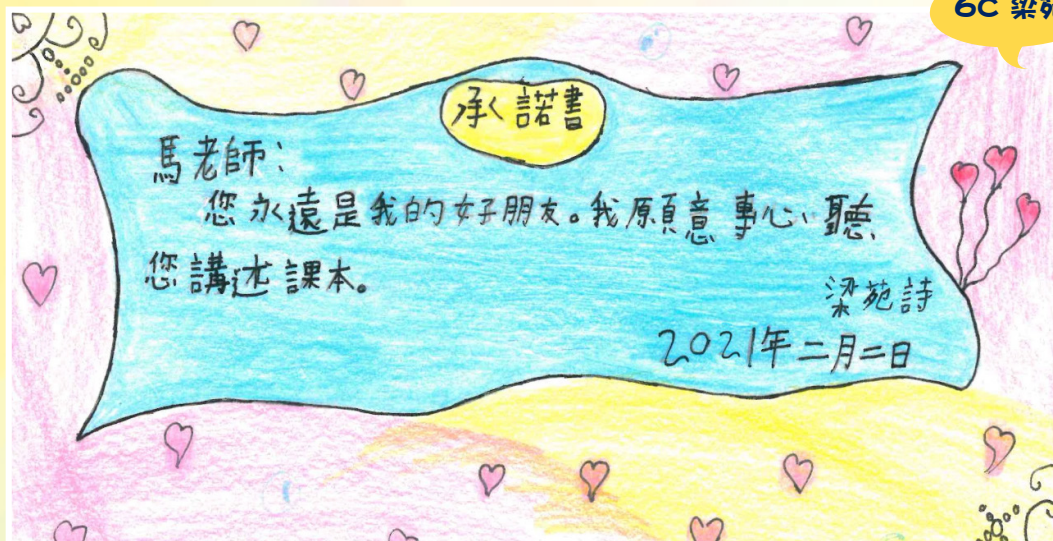 6C 梁苑
承諾書
馬老師：
您永遠是我的好朋友。我願意專心聽
您講述課本。
梁苑詩
2021年二月二日